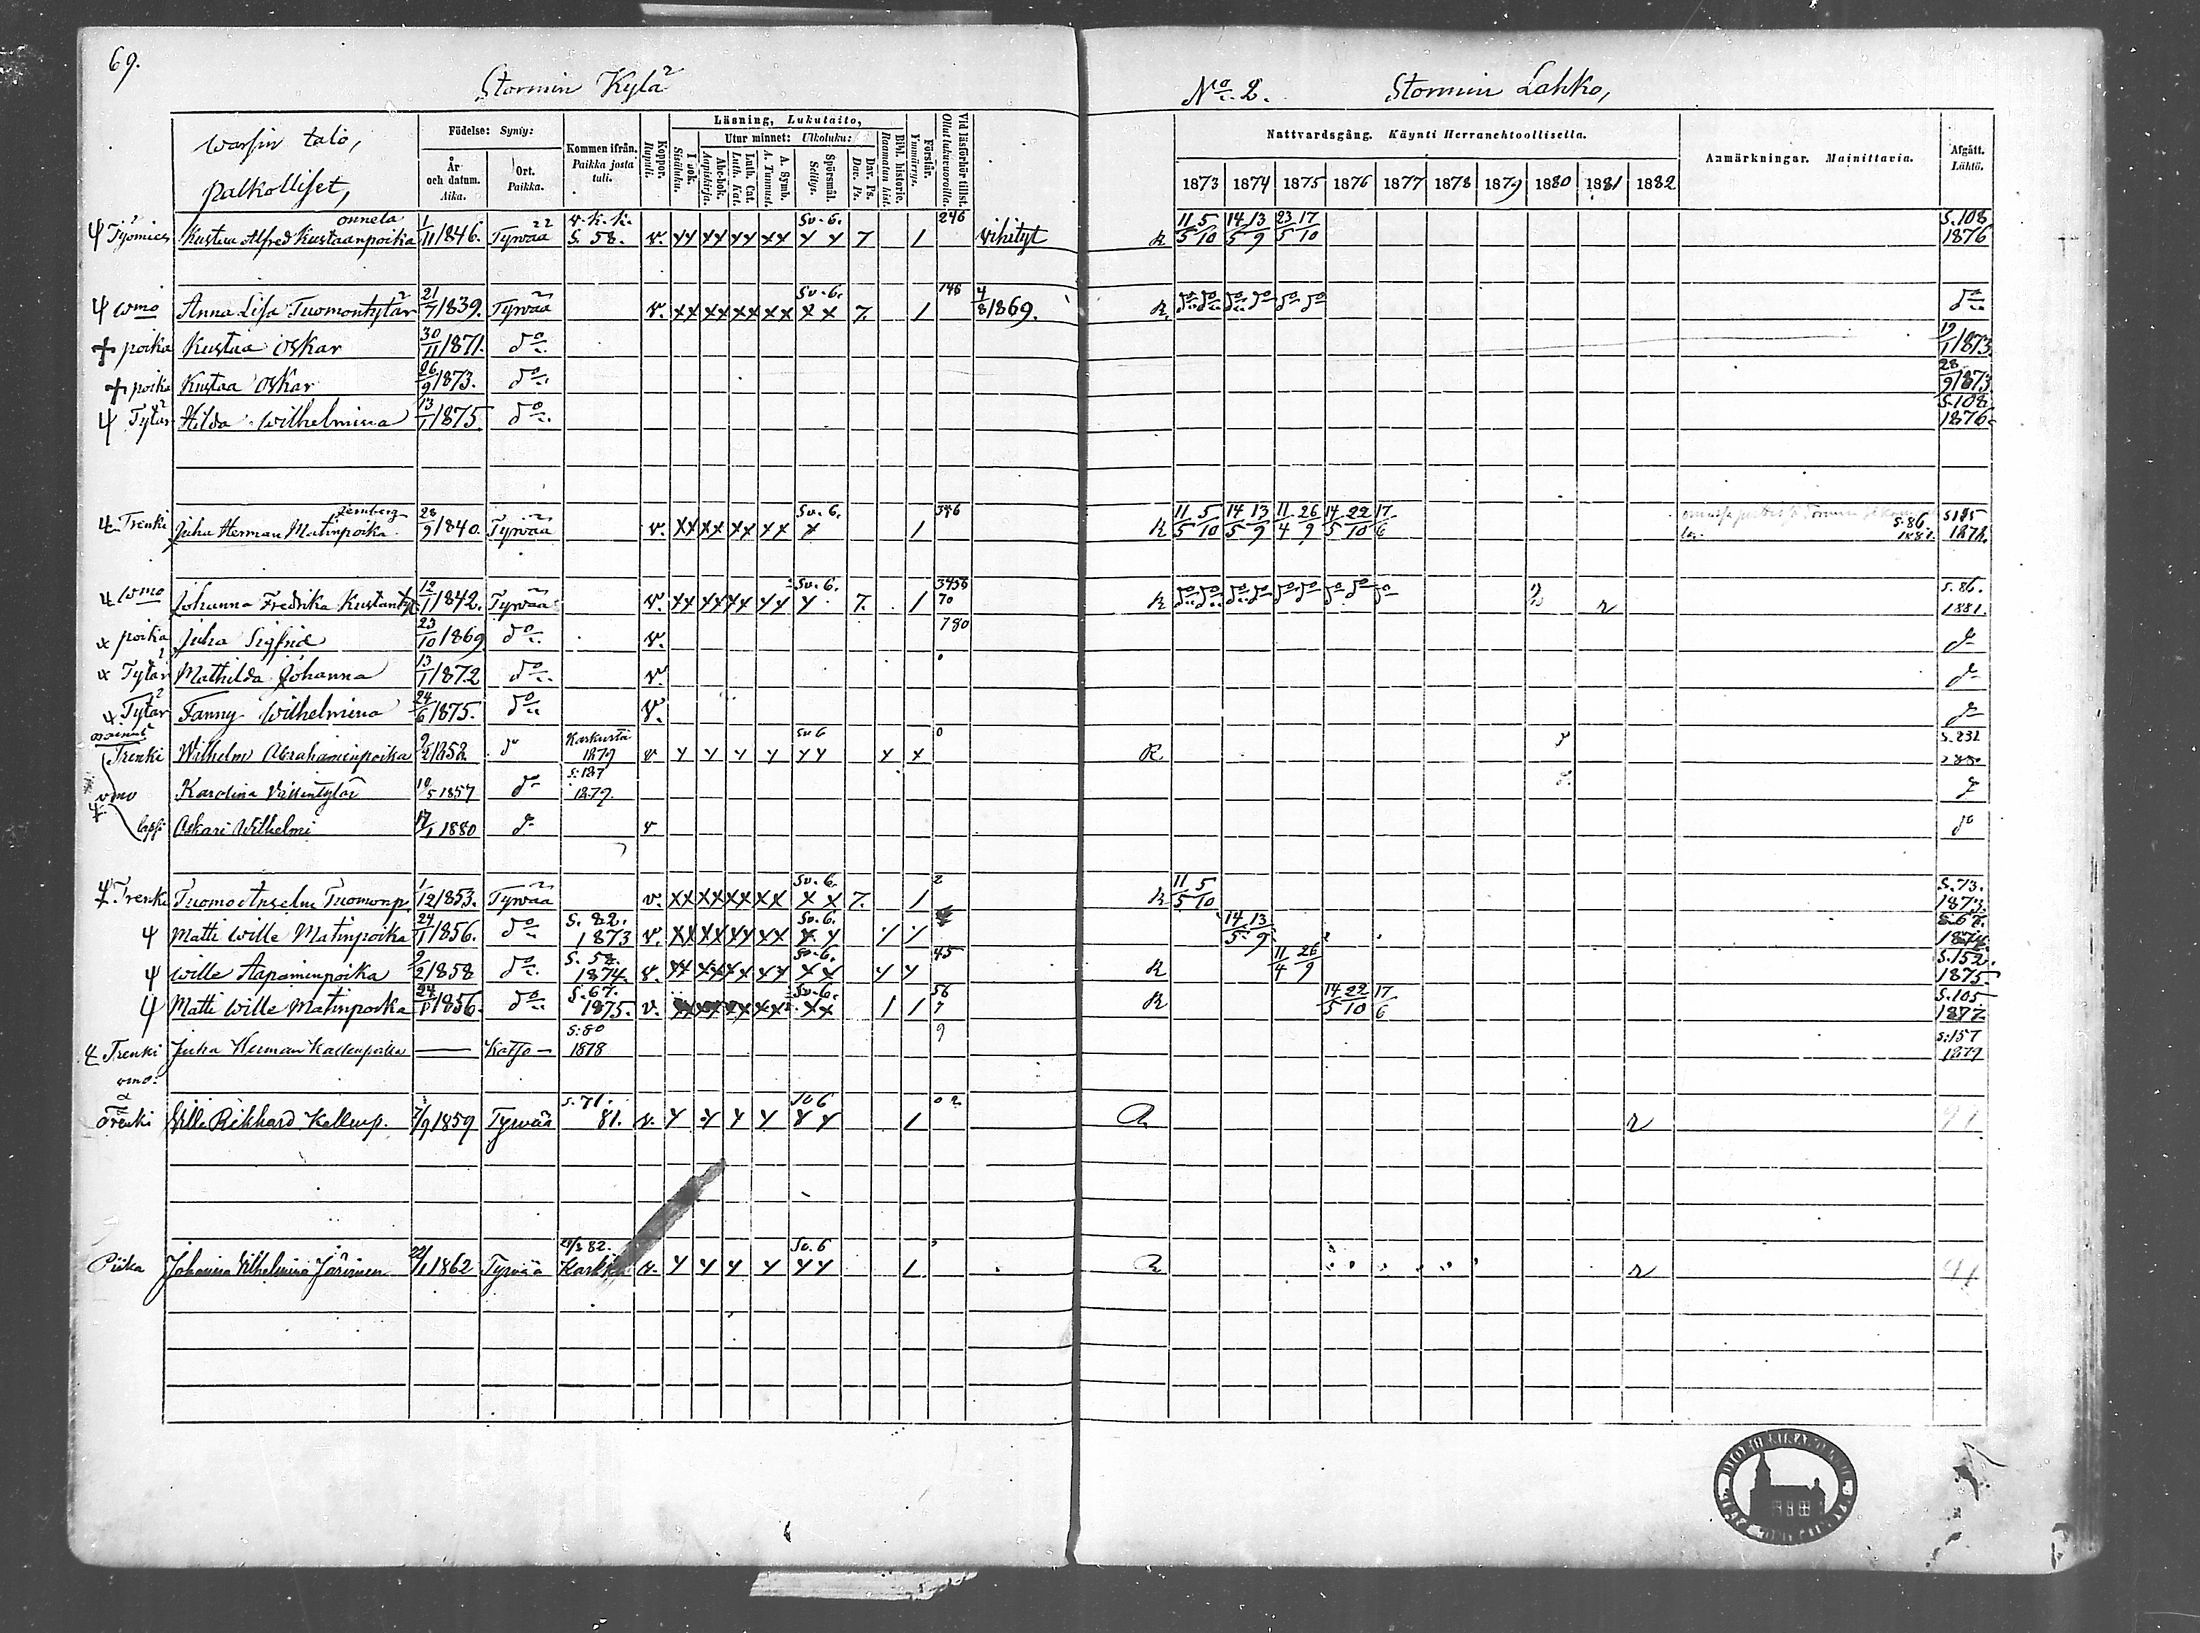 69.
Stormin Kylä
No 2. Stormin Lahko,
warsin talo,
palkolliset,
Födelse: Syniy:
År och datum. Aika.
Ort. Paikka.
Kommen ifrån. Paikka josta tuli.
Koppor. Rupuli.
Läsning, Lukutaito,
I bok. Sisäluku.
Utur minnet: Ulkoluku:
Abc-bok. Aapiskirja.
Luth. Cat. Luth. Kat.
A. Symb. A. Tunnust.
Spörsmål. Selitys.
Dav. Ps. Dav. Ps.
Bibl. historie. Raamatun hist.
Förstår. Ymmärrys.
Vid läsförhör tillst. Ollut lukuvuoroilla.
Nattvardsgång. Käynti Herranehtoollisella.
1873 1874 1875 1876 1877 1878 1879 1880 1881 1882
Anmärkningar. Mainittavia.
Afgått. Lähtö.
onnela v. k. k. Sv. 6. 246 11 5 14 13 23 17 S. 108
Työmies Kustaa Alfred Kustaanpoika 1/11 1846. Tyrvää S. 58. v. xx xx xx xx x x 7 1 vihityt R 5 10 5 9 5 10 1876
wmo Anna Lisa Tuomontytär 21/7 1839. Tyrvää v. xx xx xx xx Sv. 6. x x 7. 1 146 4/8 1869. R. do do do do do do do
poika Kustaa Oskar 30/11 1871. do 19/1 1873.
poika Kustaa Oskar 26/9 1873. do 28/9 1873
Tytär Hilda Wilhelmina 13/1 1875. do S. 108 1876.
Trenki Juha Herman Matinpoika 28/9 1840. Tyrvää v. xx xx xx xx Sv. 6. x 1 346 R 11/5 5/10 14/5 13/9 11/4 26/9 14/5 22/10 17/6 S. 86. 1881.
wmo Johanna Fredrika Kustantyt. 12/1 1842. Tyrvää v. xx xx xx xx Sv. 6. x 7. 1 3456 70 R do do do do do do do do do r S. 86. 1881.
poika Juha Sigfrid 23/10 1869 do v. 780 do
Tytär Mathilda Johanna 13/1 1872 do v. do
Tytär Fanny Wilhelmina 24/6 1875. do v. do
Trenki Wilhelm Abrahaminpoika 9/2 1852 do Karkusta 1879 v x x x x Sv 6 xx x x 0 R S. 232 1880
vmo Karolina Villentytär 19/5 1857 do S. 187 1879. do
lapsi Oskari Wilhelmi 17/1 1880 do v do
Trenki Tuomo Anselm Tuomonp. 1/12 1853. Tyrvää v. xx xx xx xx Sv. 6. x x 7. 1 2 R 11/5 5/10 S. 73. 1873.
Matti Wille Matinpoika 24/1 1856. do S. 82. 1873 v. xx xx xx xx Sv. 6. x x 14/5 13/9 S. 67. 1874.
Wille Aapamenpoika 9/2 1858 do S. 58. 1874. v. xx xx xx xx Sv. 6. x x 45 R 11/4 26/9 S. 152. 1875.
Matti Wille Matinpoika 24/1 1856. do S. 67. 1875. v. Sv. 6. xx 1 1 56 7 R 14/5 22/10 17/6 S. 105 1877.
Trenki Juha Herman Kallenpoika Katso S: 80 1878 9 S: 157 1879
vmo:
Trenki Ville Rikhard Kallenp. 7/9 1859 Tyrvää S. 71. 81. v. x x x x Sv 6 x x 1 02 R r
Piika Johanna Wilhelmina Järvinen 22/1 1862 Tyrvää 82. v. x x x x Sv. 6 xx 1 R r